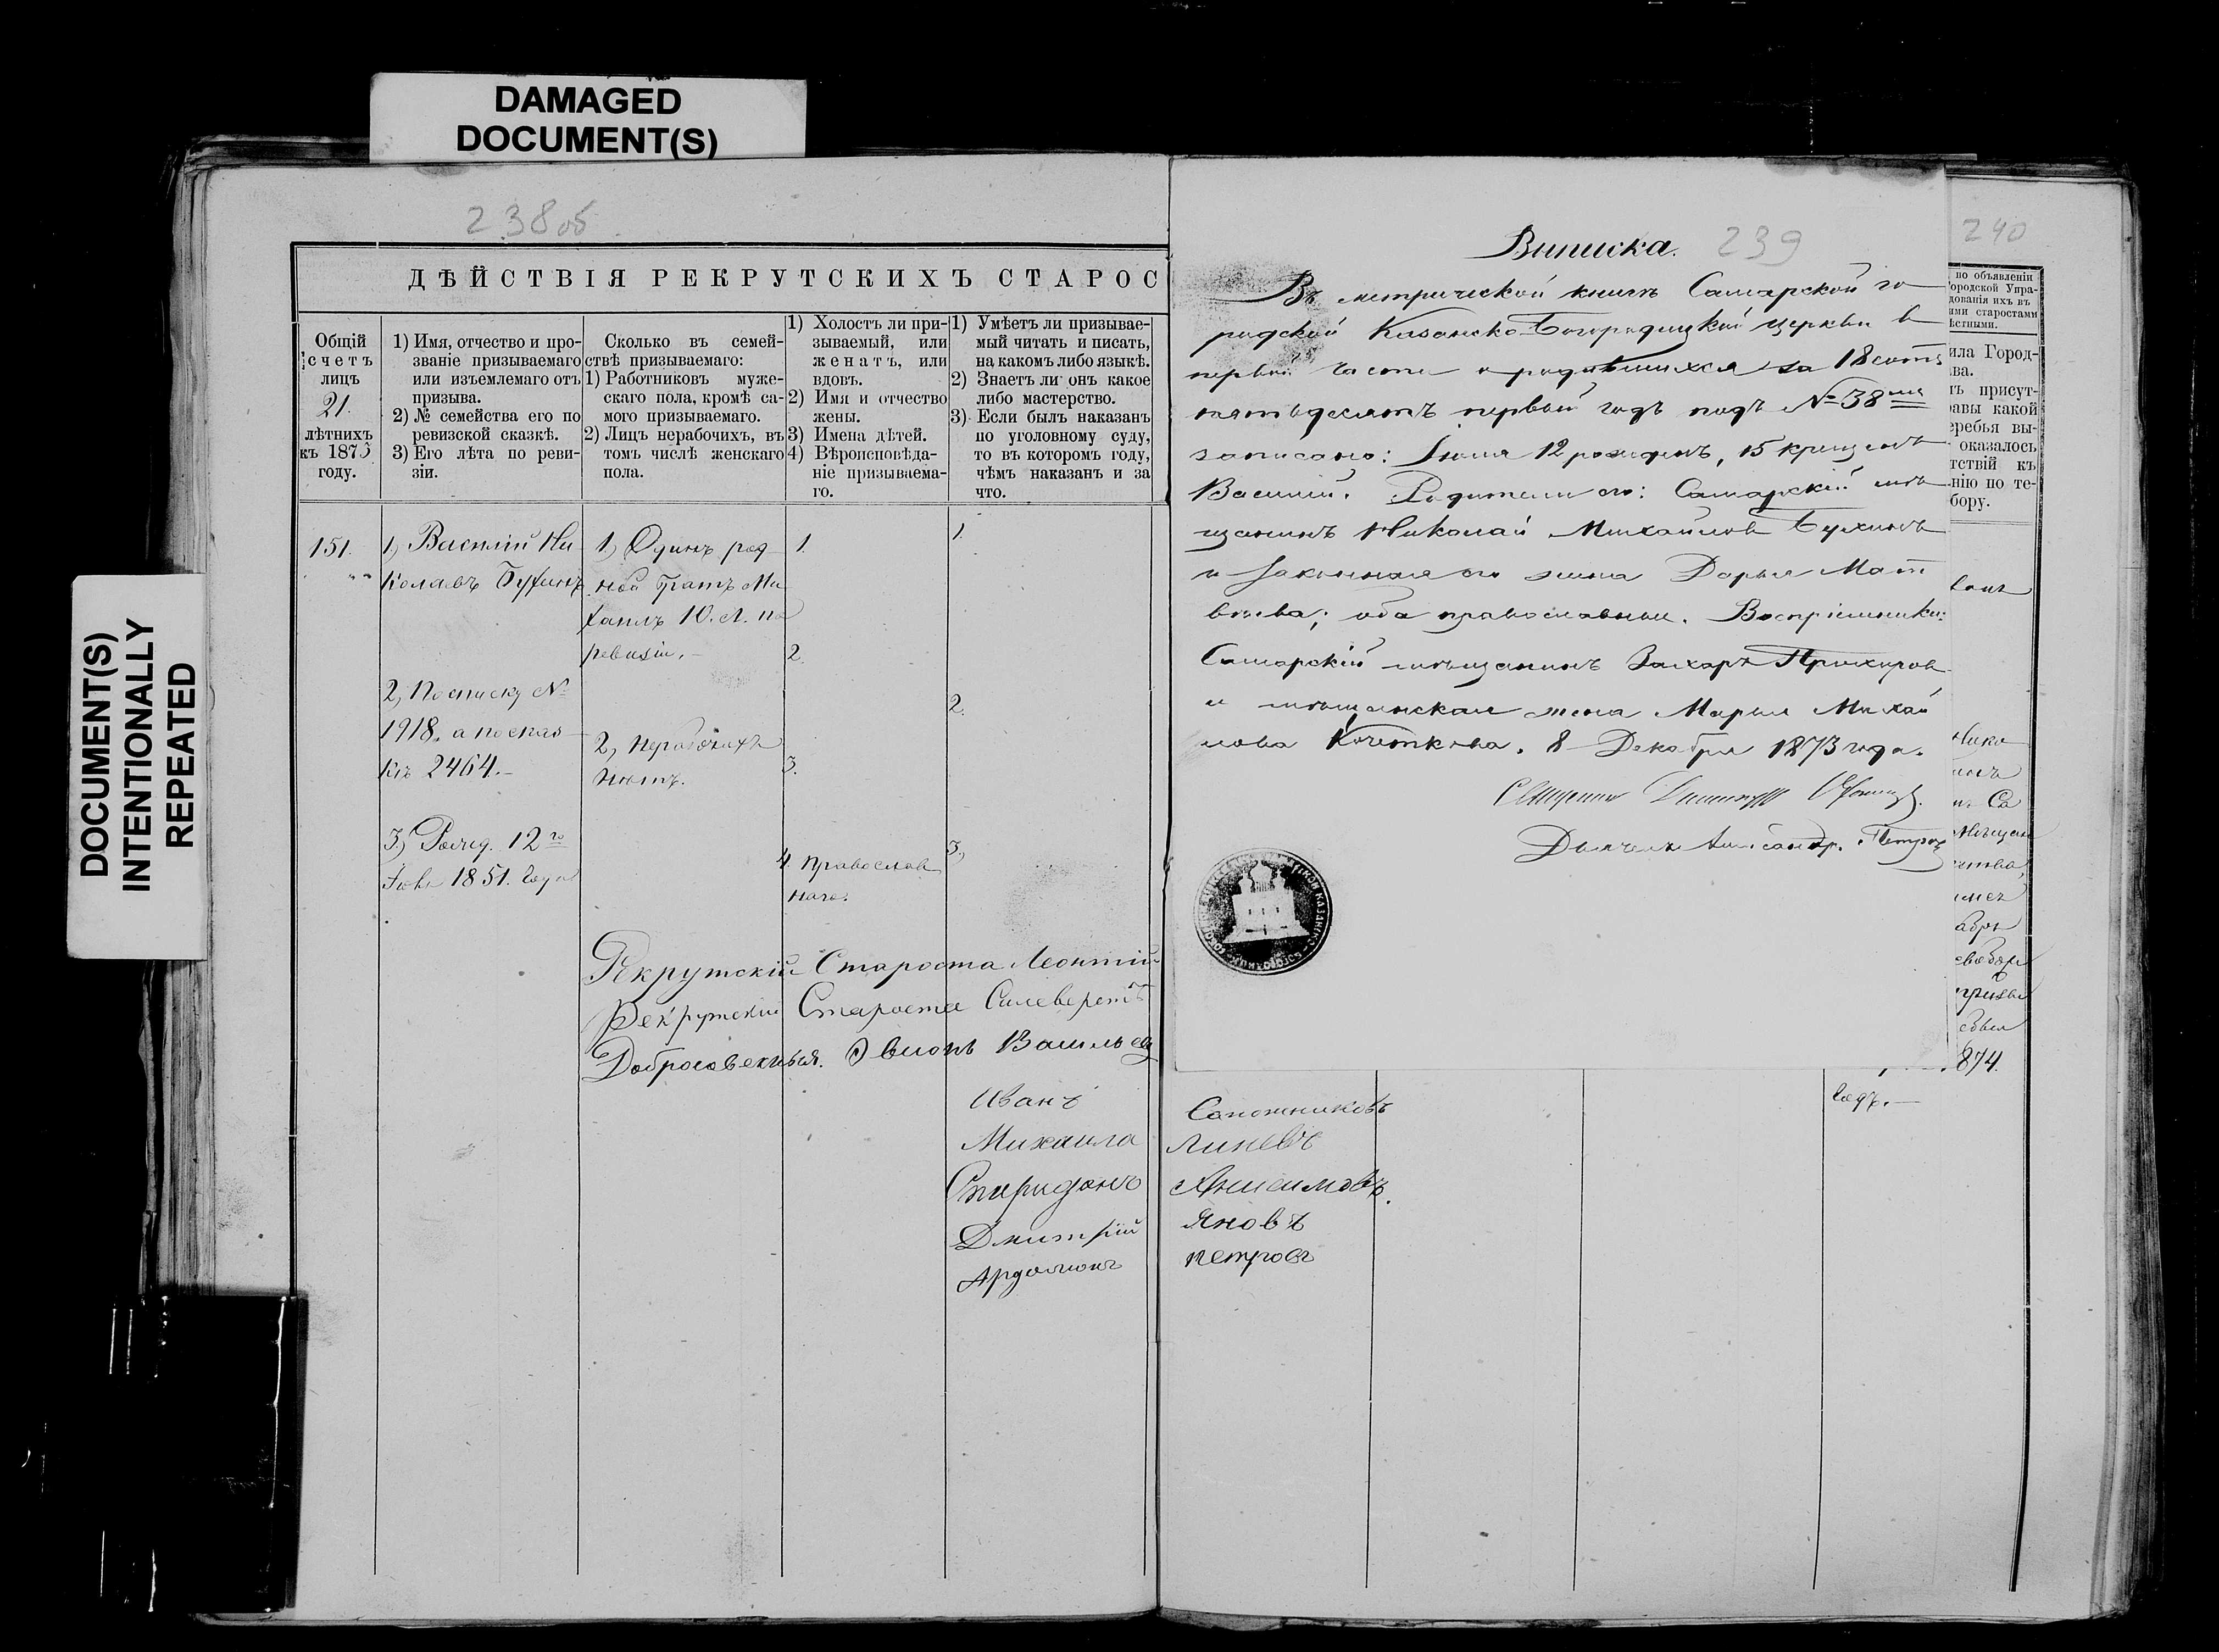 DAMAGED
DOCUMENT(S)
DOCUMENT(S)
INTENTIONALLY
REPEATED
238 об
ДѢЙСТВІЯ РЕКРУТСКИХЪ СТАРОС
Общій
счетъ
лицъ
21.
лѣтнихъ
къ 1873
году.
1) Имя, отчество и про-
званіе призываемаго
или изъемлемаго отъ
призыва.
2) № семейства его по
ревизской сказкѣ.
3) Его лѣта по реви-
зіи.
Сколько въ семей-
ствѣ призываемаго:
1) Работниковъ муже-
скаго пола, кромѣ са-
мого призываемаго.
2) Лицъ нерабочихъ, въ
томъ числѣ женскаго
пола.
1) Холостъ ли при-
зываемый, или
женатъ, или
вдовъ.
2) Имя и отчество
жены.
3) Имена дѣтей.
4) Вѣроисповѣда-
ніе призываема-
го.
1) Умѣетъ ли призывае-
мый читать и писать,
на какомъ либо языкѣ.
2) Знаетъ ли онъ какое
либо мастерство.
3) Если былъ наказанъ
по уголовному суду,
то въ которомъ году,
чѣмъ наказанъ и за
что.
151.
1, Василій Ни
колаевъ Бухинъ
2, По списку №
1918. а по сказ
кѣ 2464.
3, Рожд. 12го
1851. года
1, Одинъ род
ной братъ Ми
хаилъ 10. л. по
ревизіи.
2, нерабочихъ
нѣтъ.
1.
2.
3.
4 православ
наго.
1.
2.
3,
Рекрутскій Староста Леонтій
Рекрутскій Староста Силеверстъ
Добросовѣстныя. Васильев
Иванъ
Михаила
Спиридонъ
Дмитрій
Ардалионъ
Сапожниковъ
Линевъ
Анисимовъ.
Яновъ
Петровъ
Выписка. 239
Въ метрической книгѣ Самарской го
родской Казанско-Богородицкой церкви в
первой части о родившихся за 18сотъ
пятьдесятъ первый годъ подъ № 38мъ
записано: Іюня 12 рожденъ, 15 крещенъ
Василій. Родители его: Самарскій мѣ
щанинъ Николай Михайловъ Бухинъ
и законная его жена Дарья Мат
вѣева; оба православные. Воспріемники:
Самарскій мѣщанинъ Захаръ
и мѣщанская жена Марья Михай
лова Кочеткова. 8 Декабря 1873 года.
Священникъ
Дьяконъ Александр. Петров
240
по объявленіи
Городской Упра-
дованія ихъ въ
ими старостами
ѣстными.
ила Город-
ва.
тъ присут-
авы какой
еребья вы-
оказалось
тствій къ
нію по те-
бору.
Нико
Са
Мѣщан
призы
874.
годъ.